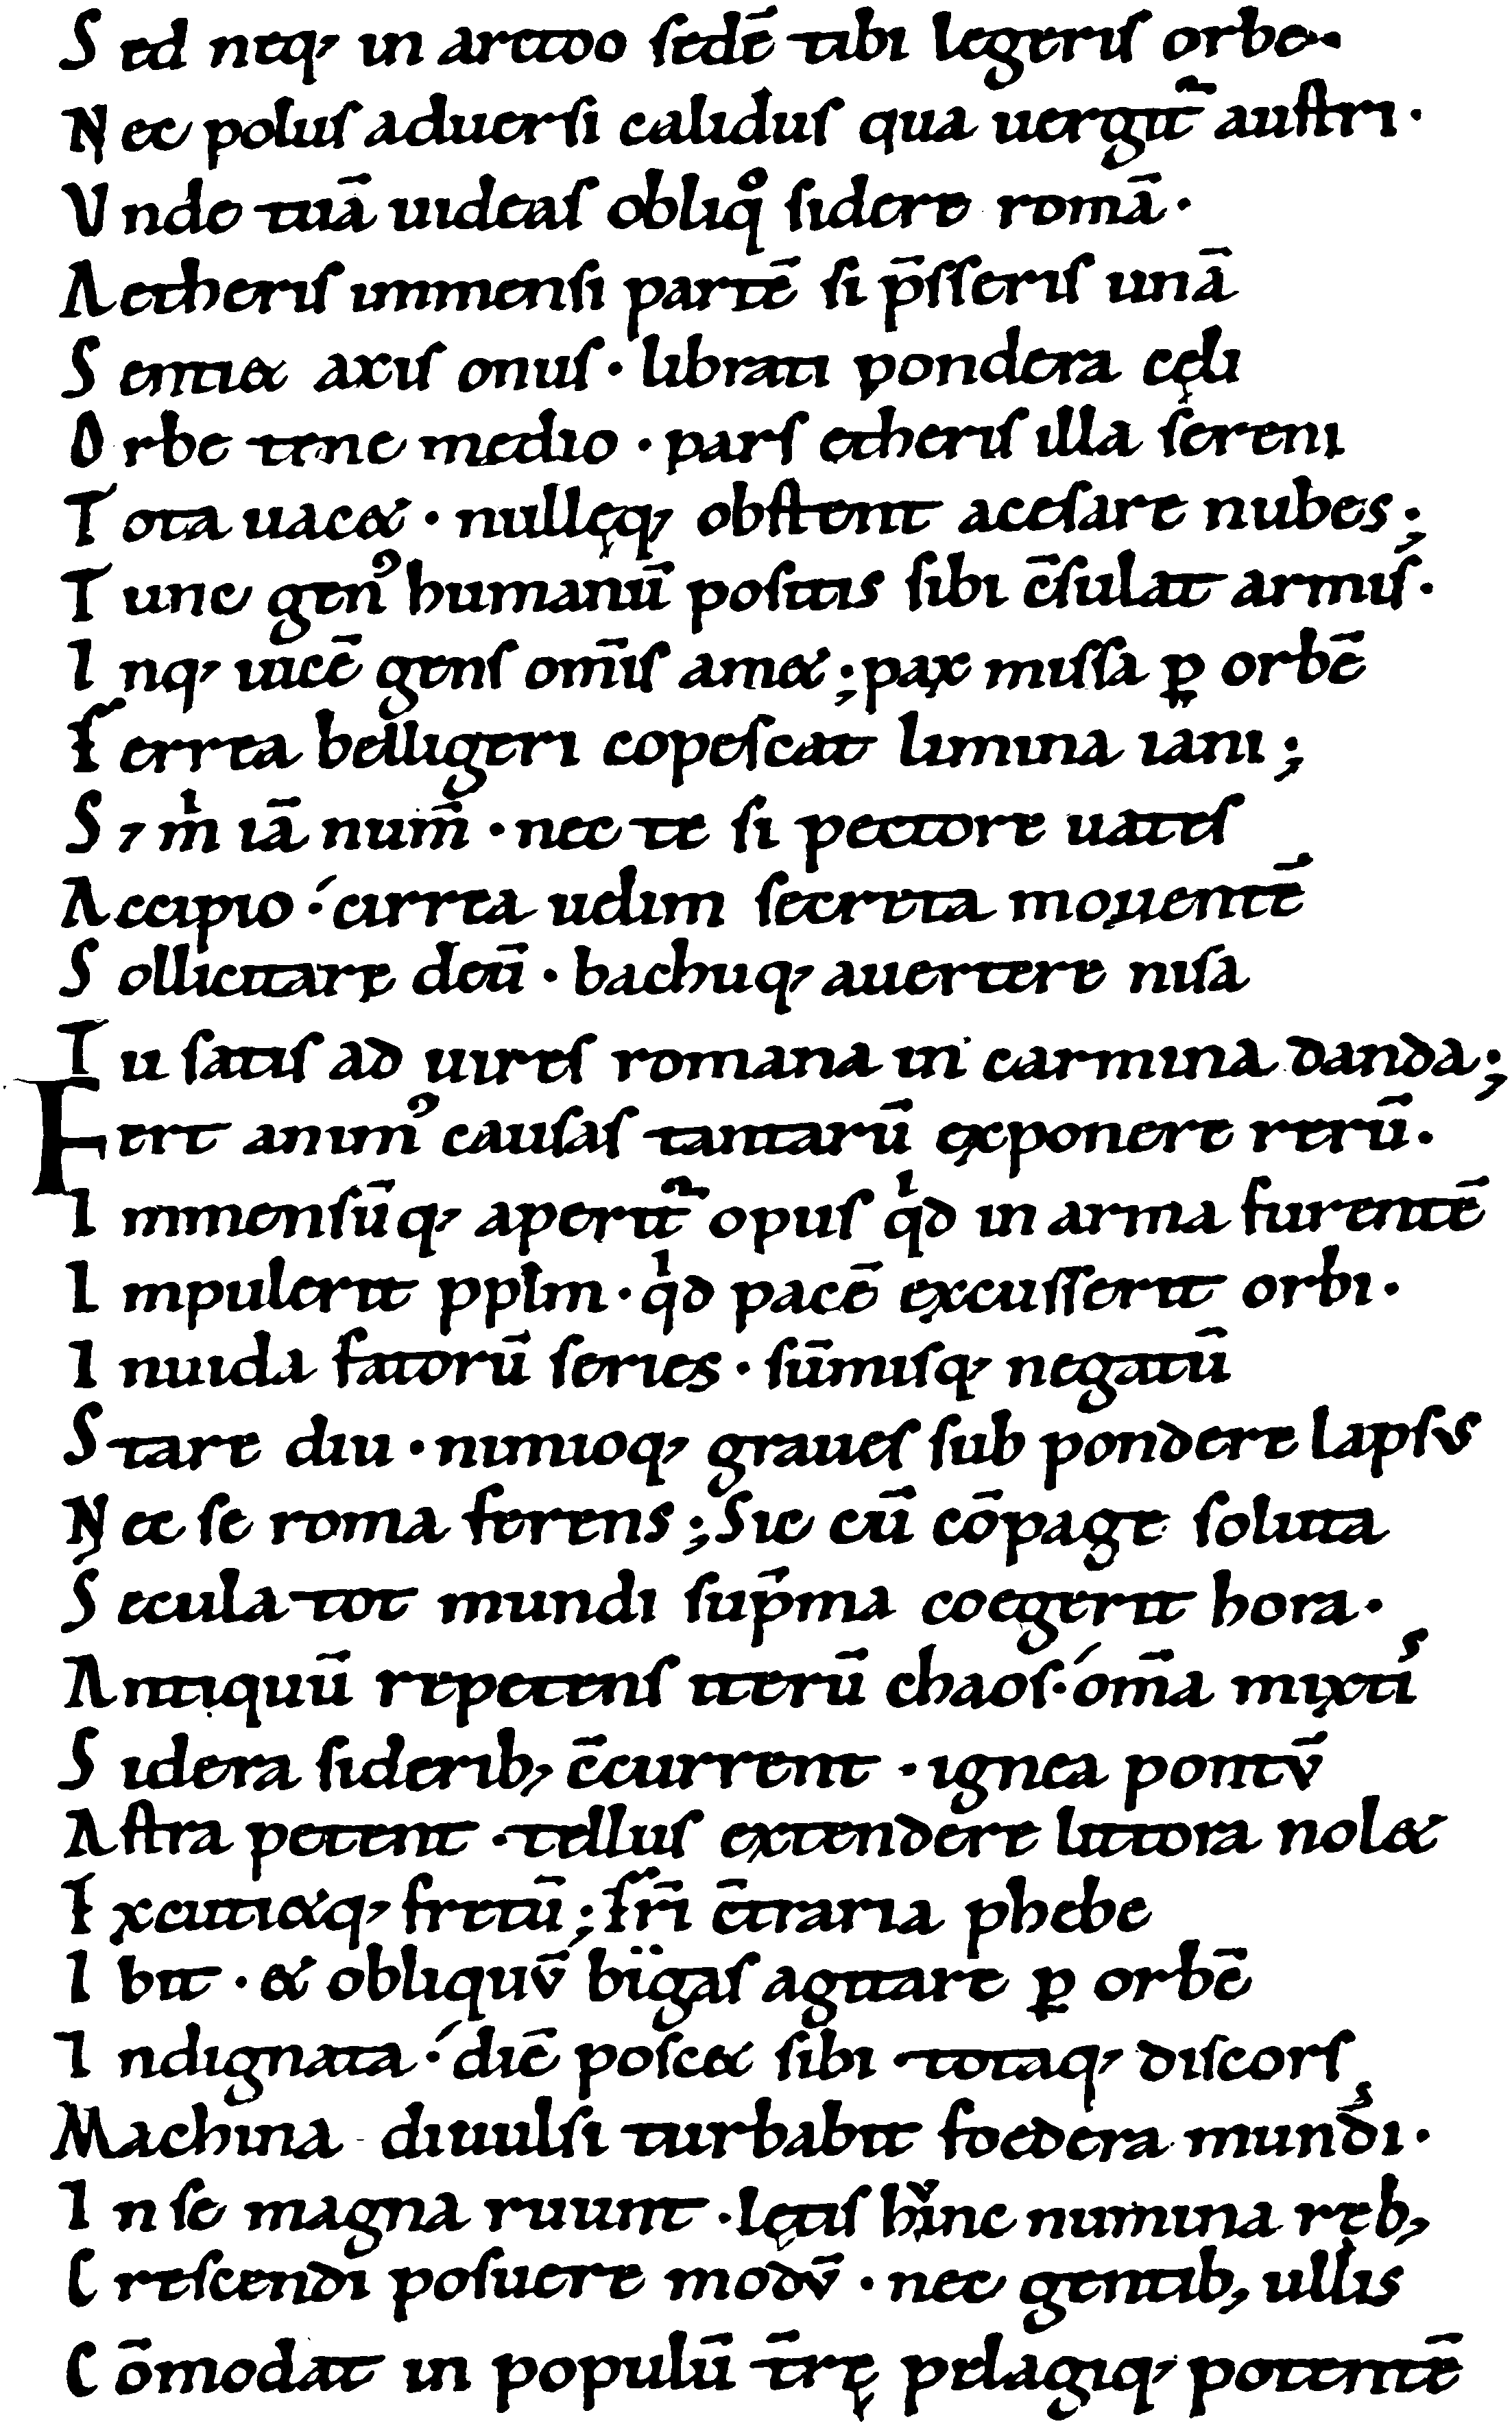 S ed neq; in arctoo sedē tibi legeris orbe.
N ec polus aduersi calidus qua uergit᷑ austri.
V nde tuā uideas obliqͦ sidere romā.
A etheris immensi partē si p̄sseris unā
S entiet axis onus. librati pondera cęli
O rbe tene medio. pars etheris illa sereni
T ota uacet. nullęq; obstent acesare nubes;
T unc genꝰ humanū positis sibi c̄sulat armis.
I nq; uicē gens om̄is amet; pax missa ꝑ orbē
F errea belligeri copescat limina iani;
S; mͥ iā num̄. nec te si pectore uates
A ccipio. cirrea uelim secreta mouentē
S ollicitare deū. bachuq; auertere nisa
T u satis ad uires romana in carmina danda;
F ert animꝰ causas tantarū exponere rerū.
I mmensūq; aperit᷑ opus qͥd in arma furentē
I mpulerit pplm̄. qͥd pacē excusserit orbi.
I nuida fatorū series. sūmisq; negatū
S tare diu. nimioq; graues sub pondere lapsus
N ec se roma ferens; Sic cū cōpage soluta
S ecula tot mundi sup̄ma coegerit hora.
A ntiquū repetens iterū chaos. om̄a mixtis
S idera siderib; c̄current. ignea pontū
A stra petent. tellus extendere littora nolet
E xcutietq; fretū; Fr̄i c̄traria phebe
I bit. & obliquū bigas agitare ꝑ orbē
I ndignata. diē poscet sibi totaq; discors
M achina diuulsi turbabit foedera mundi.
I n se magna ruunt. lętis hinc numina reb;
C rescendi posuere modū. nec gentib; ullis
C ōmodat in populū t̄rę pelagiq; potentē